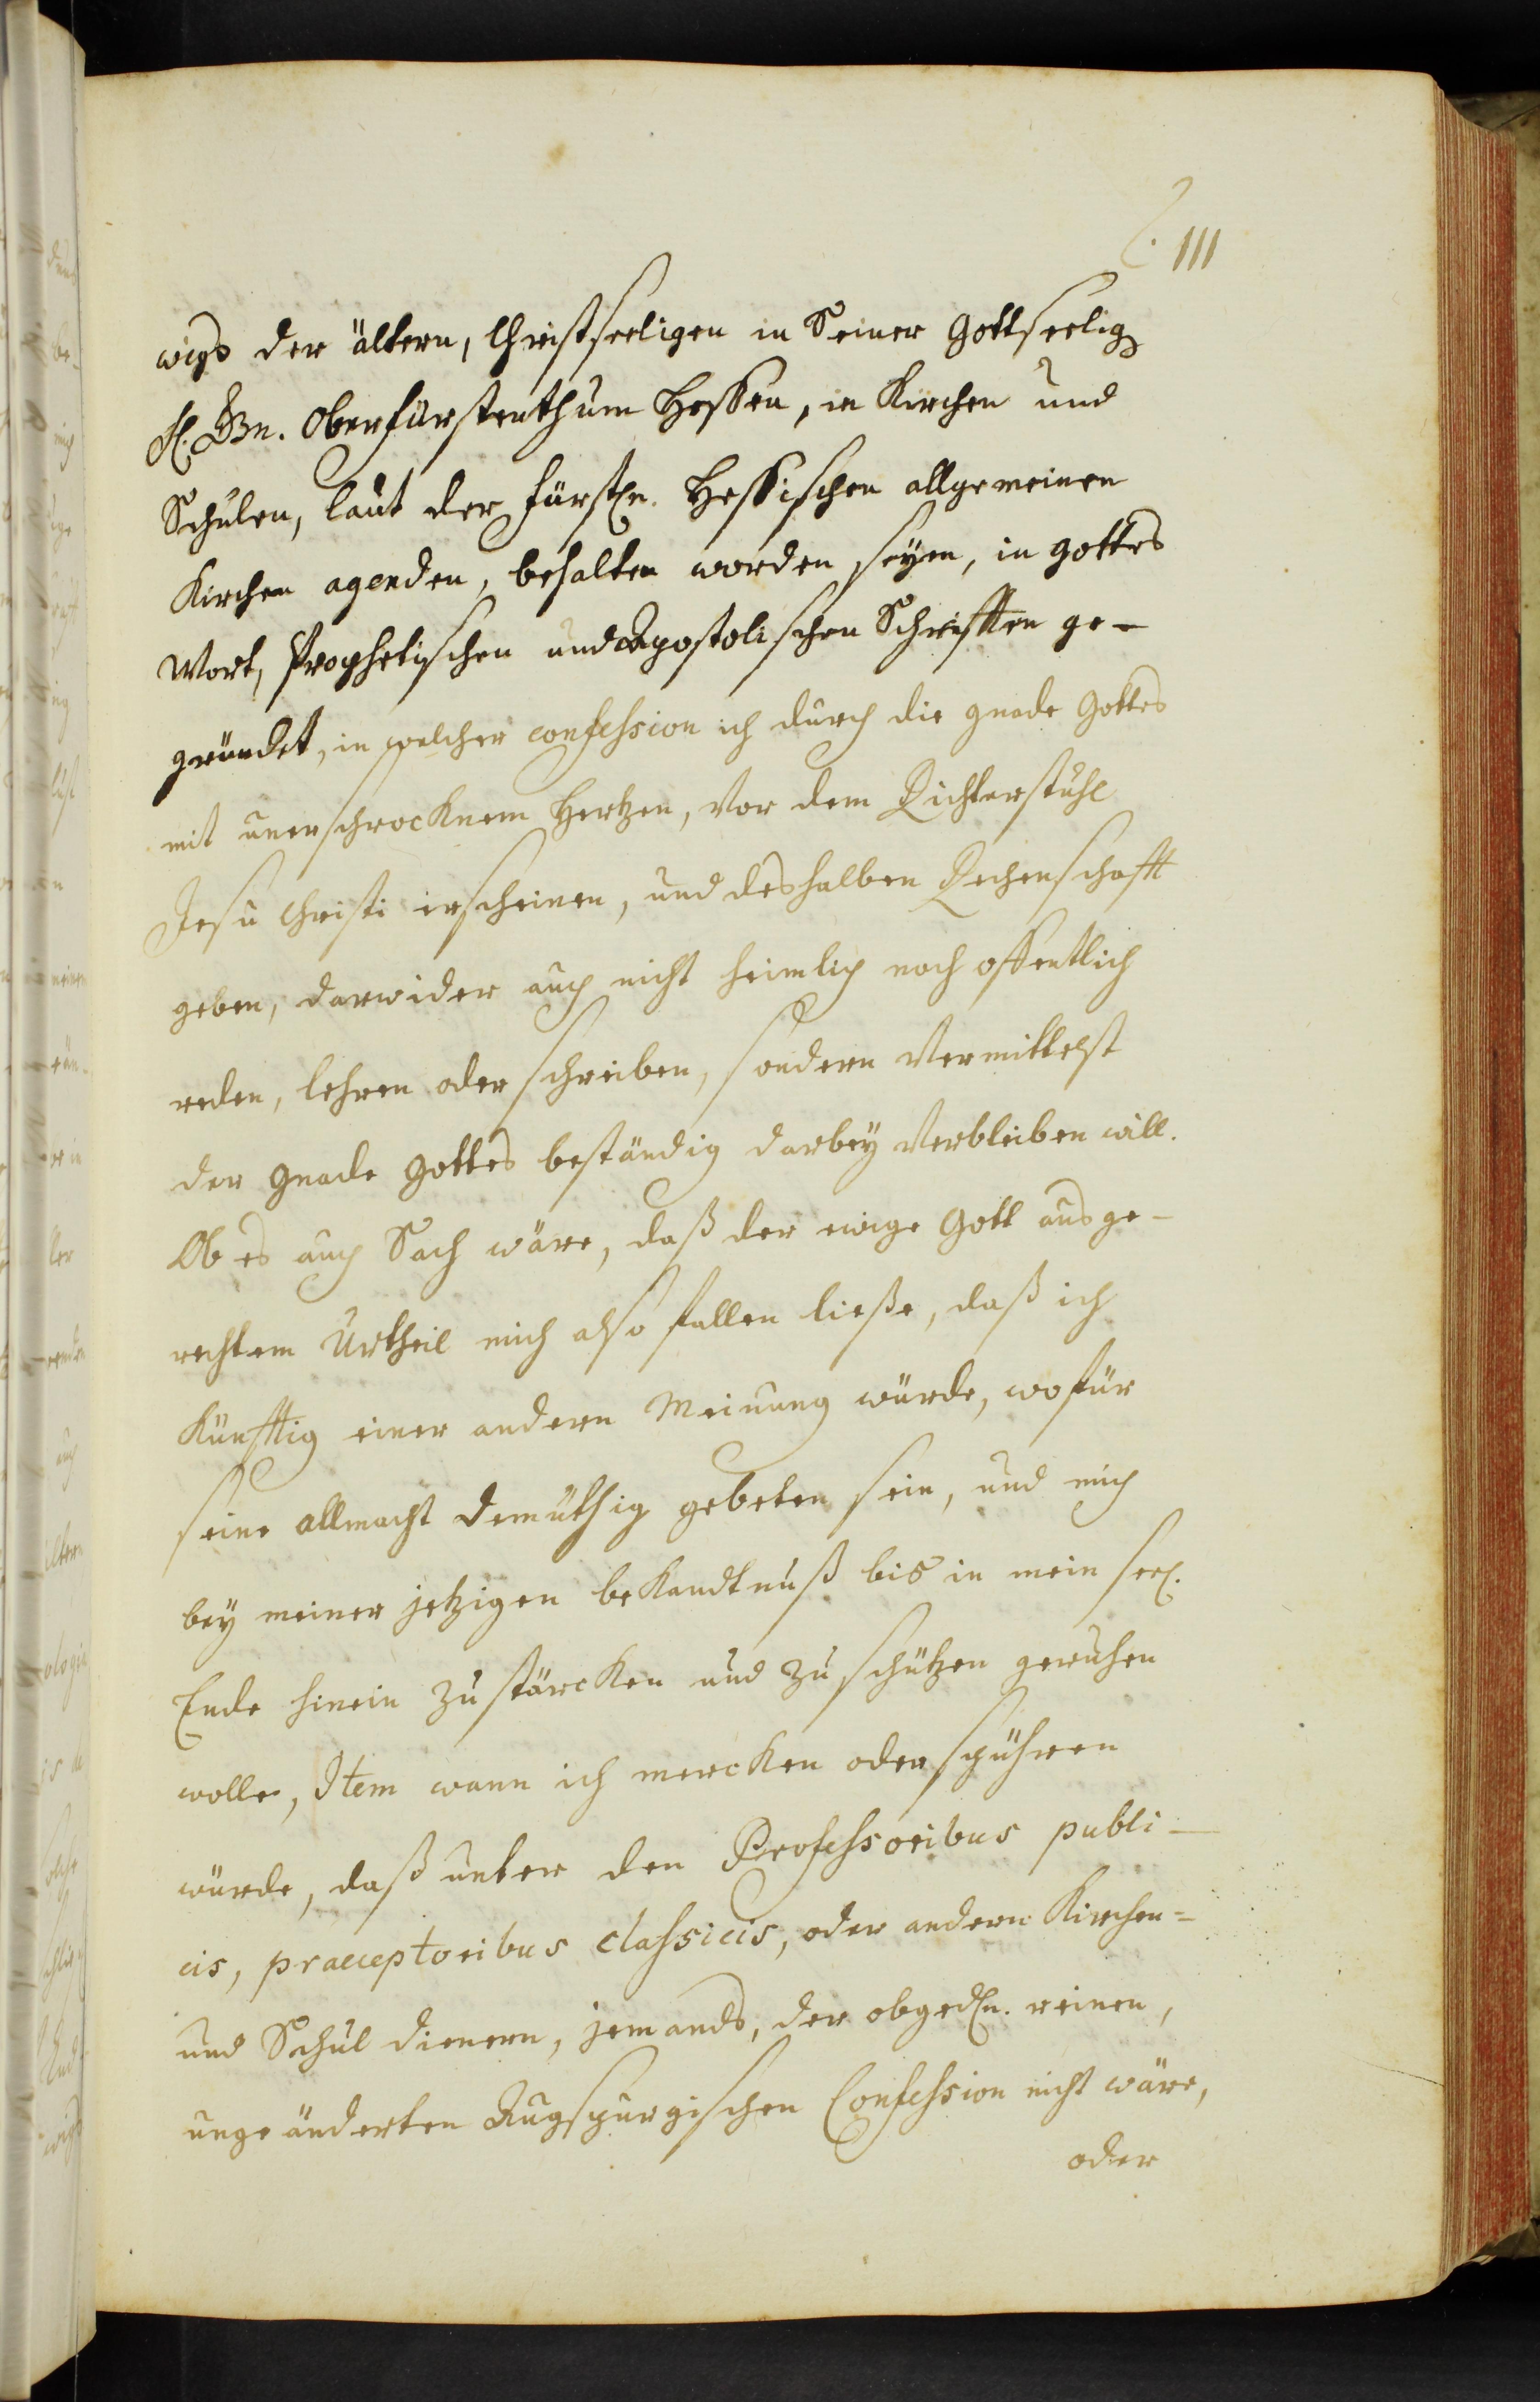 111
wigs der ältern, Christseeligen in Seiner Gottseelig
f. Gn. Oberfürstenthum Hessen, in Kirchen und
Schulen, laut der fürstln. Hessischen allgemeinen
Kirchen agenden, behalten worden seyen, in gottes
Wort, Prophetischen und Apostolischen Schrifften ge-
gründet, in welcher confession ich durch die gnade Gottes
mit unerschrocknem Hertzen, vor dem Richterstuhl
Jesu Christi erscheinen, und deshalben Rechenschafft
geben, darwider auch nicht heimlich noch offentlich
reden, lehren oder schreiben, sondern vermittelst
der Gnade Gottes beständig darbey verbleiben will.
Ob es auch Sach wäre, daß der ewige Gott aus ge-
rechtem Urtheil mich also fallen ließe, daß ich
künfftig einer andern Meinung würde, wofür
seine allmacht demüthig gebeten sein, und mich
bey meiner jetzigen bekandtnuß bis in mein seel.
Ende hinein zu stärcken und zu schützen geruhen
wolle, Item wann ich mercken oder spühren
würde, daß unter den Professoribus publi-
cis, praeceptoribus classicis, oder andern Kirchen=
und Schul dienern, jemands, der obgedln. reinen,
ungeänderten Augspurgischen Confession nicht wäre,
oder